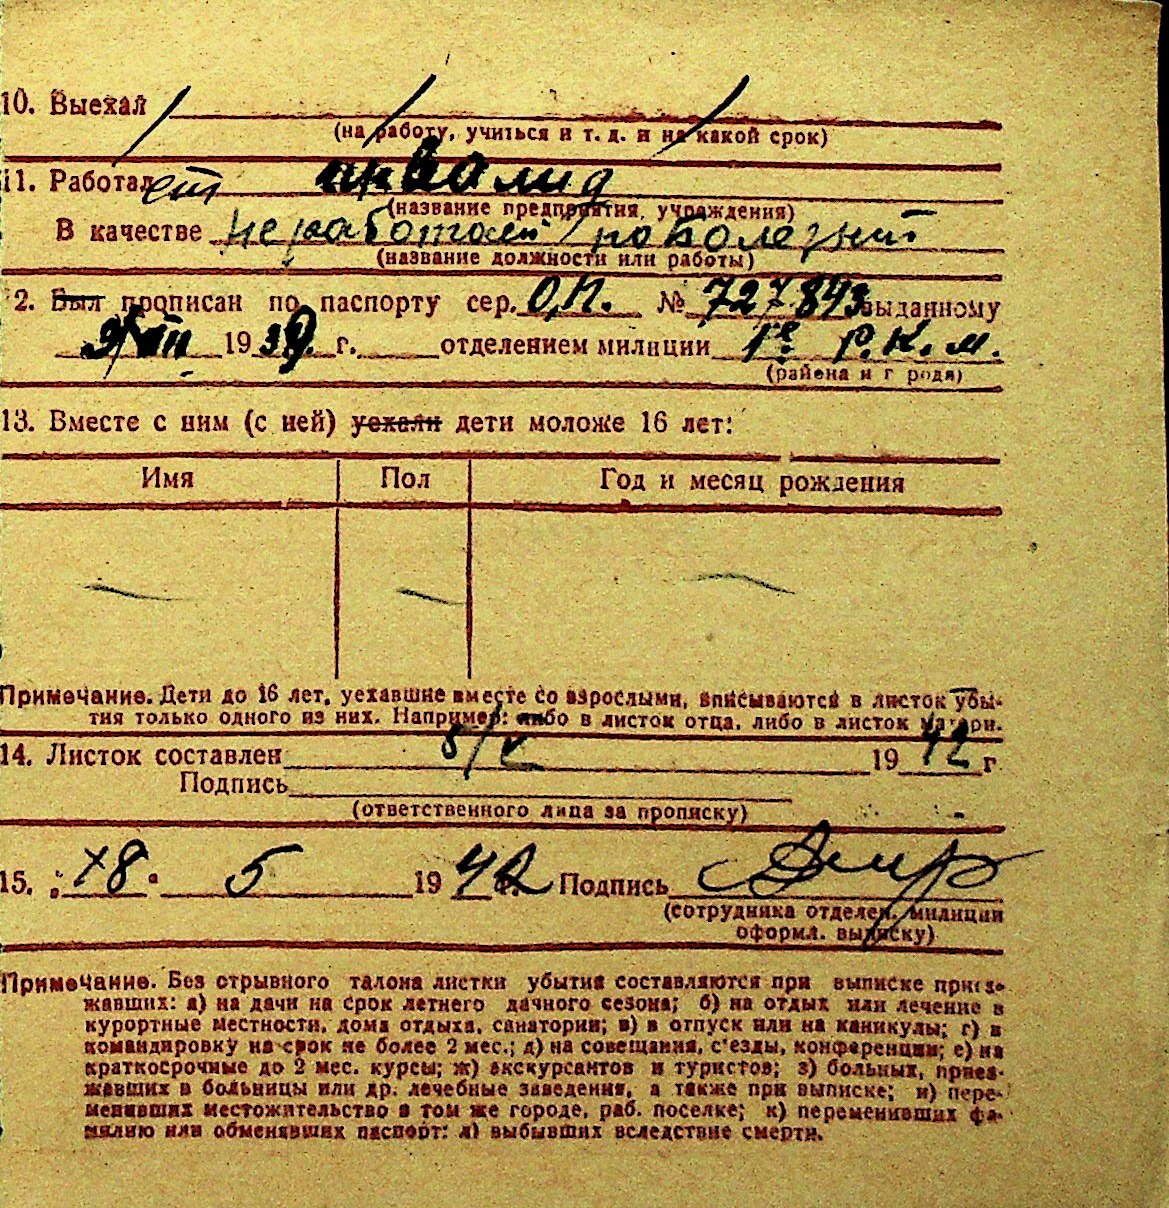 10. Выехал
(на работу, учиться и т. д. и на какой срок)
11. Работал ет инвалид
(название предприятия, учреждения)
В качестве не работает по болезни
(название должности или работы)
2. Был прописан по паспорту сер. О.П. № 727843 выданному
1939 г. отделением милиции 1е Р.К.М.
(района и г родя)
13. Вместе с ним (с ней) уехали дети моложе 16 лет:
Имя Пол Год и месяц рождения
Примечание. Дети до 16 лет, уехавшие вместе со взрослыми, вписываются в листок убы-
тия только одного из них. Например: либо в листок отца, либо в листок матери.
14. Листок составлен 5/V 1942 г
Подпись
(ответственного лица за прописку)
15. "18" 5 1942 Подпись
(сотрудника отделен. милиции
оформл. выписку)
Примечание. Без отрывного талона листки убытия составляются при выписке приез-
жавших: а) на дачи на срок летнего дачного сезона; б) на отдых или лечение в
курортные местности, дома отдыха, санатории; в) в отпуск или на каникулы; г) в
командировку на срок не более 2 мес.; д) на совещания, с'езды, конференции; е) на
краткосрочные до 2 мес. курсы; ж) экскурсантов и туристов; з) больных, приез-
жавших в больницы или др. лечебные заведения, а также при выписке; и) пере-
менивших местожительство в том же городе, раб. поселке; к) переменивших фа-
милию или обменявших паспорт: л) выбывших вследствие смерти.